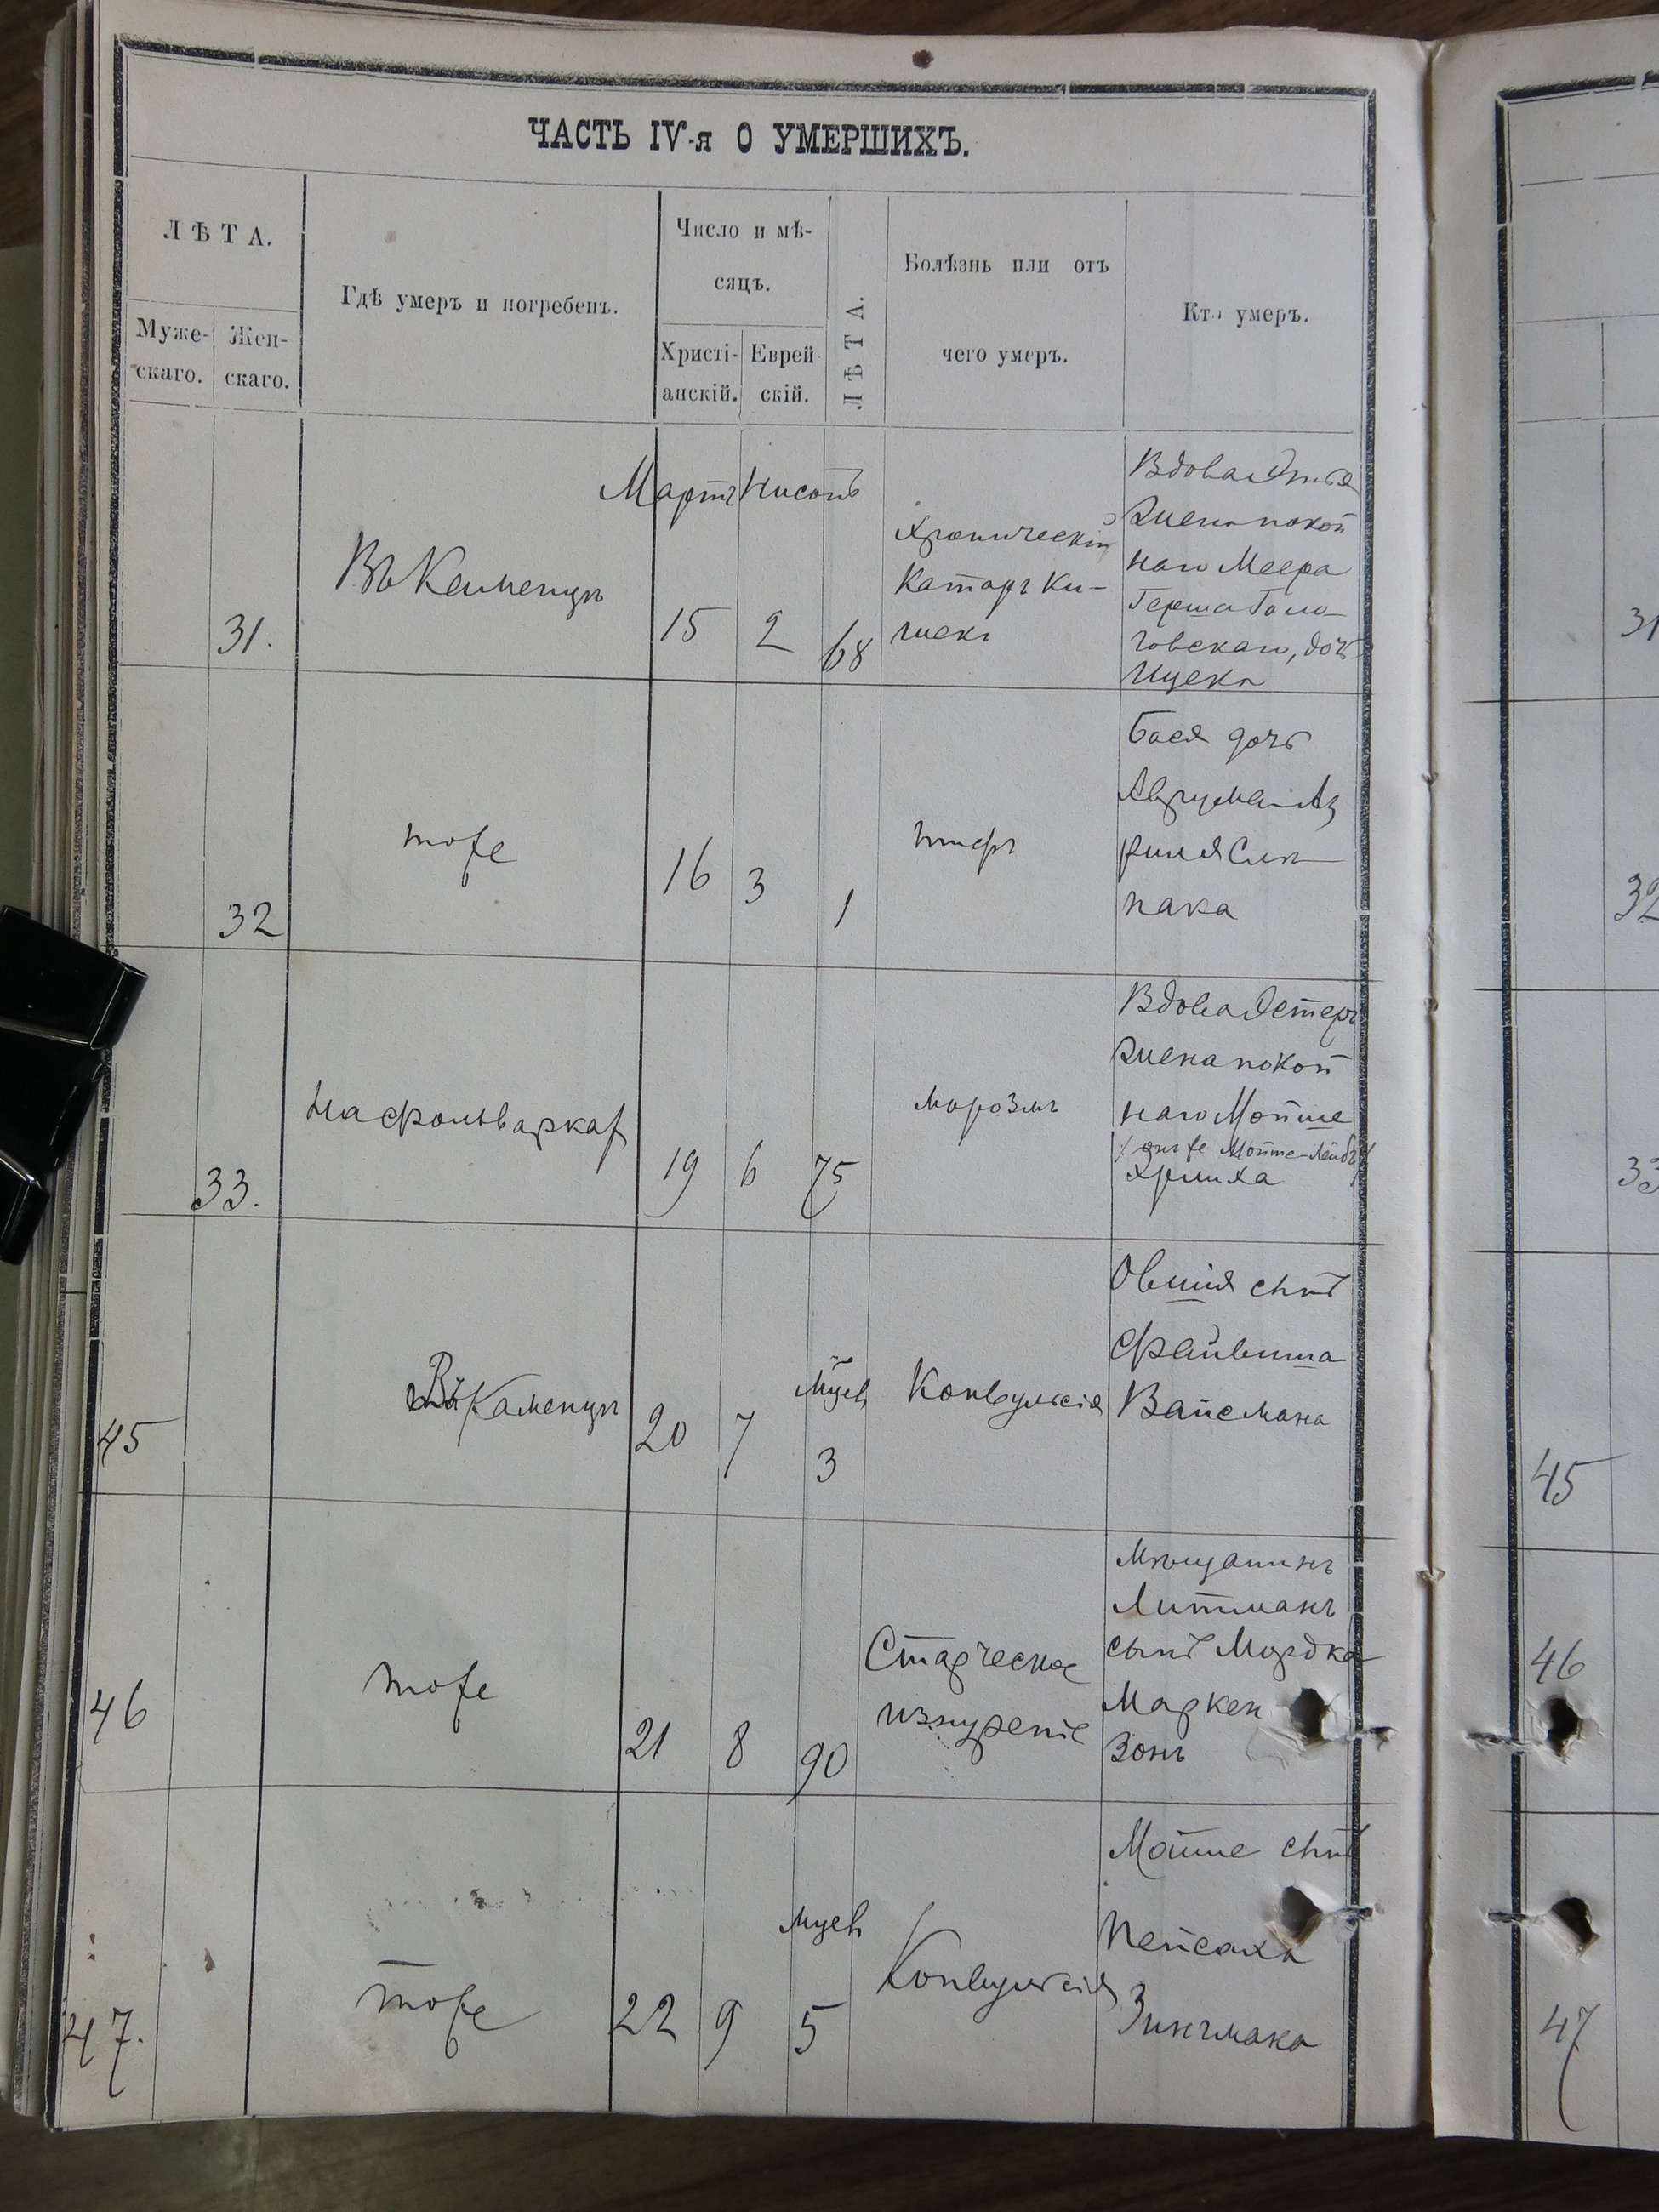 ЧАСТЬ IV-я О УМЕРШИХЪ.
ЛѢТА.
Муже-
скаго.
Жен-
скаго.
Гдѣ умеръ и погребенъ.
Число и мѣ-
сяцъ.
Христі-
анскій.
Еврей
скій.
ЛѢТА.
Болѣзнь или отъ
чего умеръ.
Кто умеръ.
Мартъ Нисонъ
31.
Въ Каменцѣ
15
2
68
Хроническій
Катаръ Ки-
шекъ
Вдова
жена покой
наго Меера
Герша Голо
говскаго, дочь
Ицека
32
тоже
16
3
1
Бася дочь
Аврума-Аз
риля Сле
пака
33.
На фольварках
19
6
75
Вдова Эстеръ
жена покой
наго Мойше
онъ же Мойше-Лейбъ
45
Въ Каменцѣ
20
7
Мцев
3
Конвульсія
Овшія сынъ
Файвиша
Вайсмана
46
тоже
21
8
90
Старческое
изнуреніе
Мѣщанинъ
Литманъ
сынъ Мордка
Маркен
зонъ
47.
тоже
22
9
мцев
5
Конвульсія
Мойше сынъ
Пейсаха
31
32
33
45
46
47